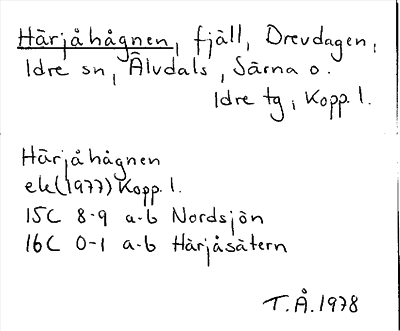 Härjåhågnen, fjäll, Drevdagen,
Idre sn, Älvdals, Särna o.
Idre tg, Kopp. l.
Härjåhågnen
ek (1977) Kopp. l.
15C 8-9 a-b Nordsjön
16C 0-1 a-b Härjåsätern
T.Å. 1978